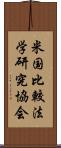 米国比較法
学研究協会